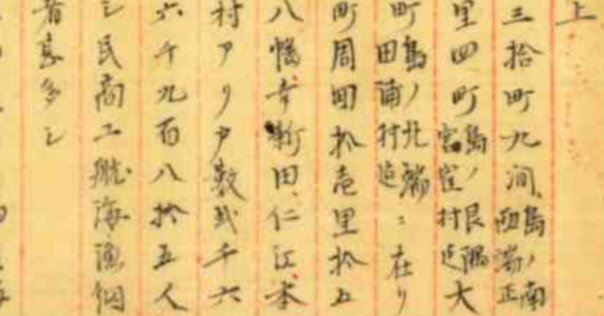 上
三拾町九間島ノ南西端正
里四町島ノ艮隅宮窪村迄大
町島ノ北端田浦村迄ニ在リ
町周回拾壱里拾五
八幡幸新田仁江本
村アリ戸数弐千六
六千九百八拾五人
シ民商工航海漁佃
者甚多シ